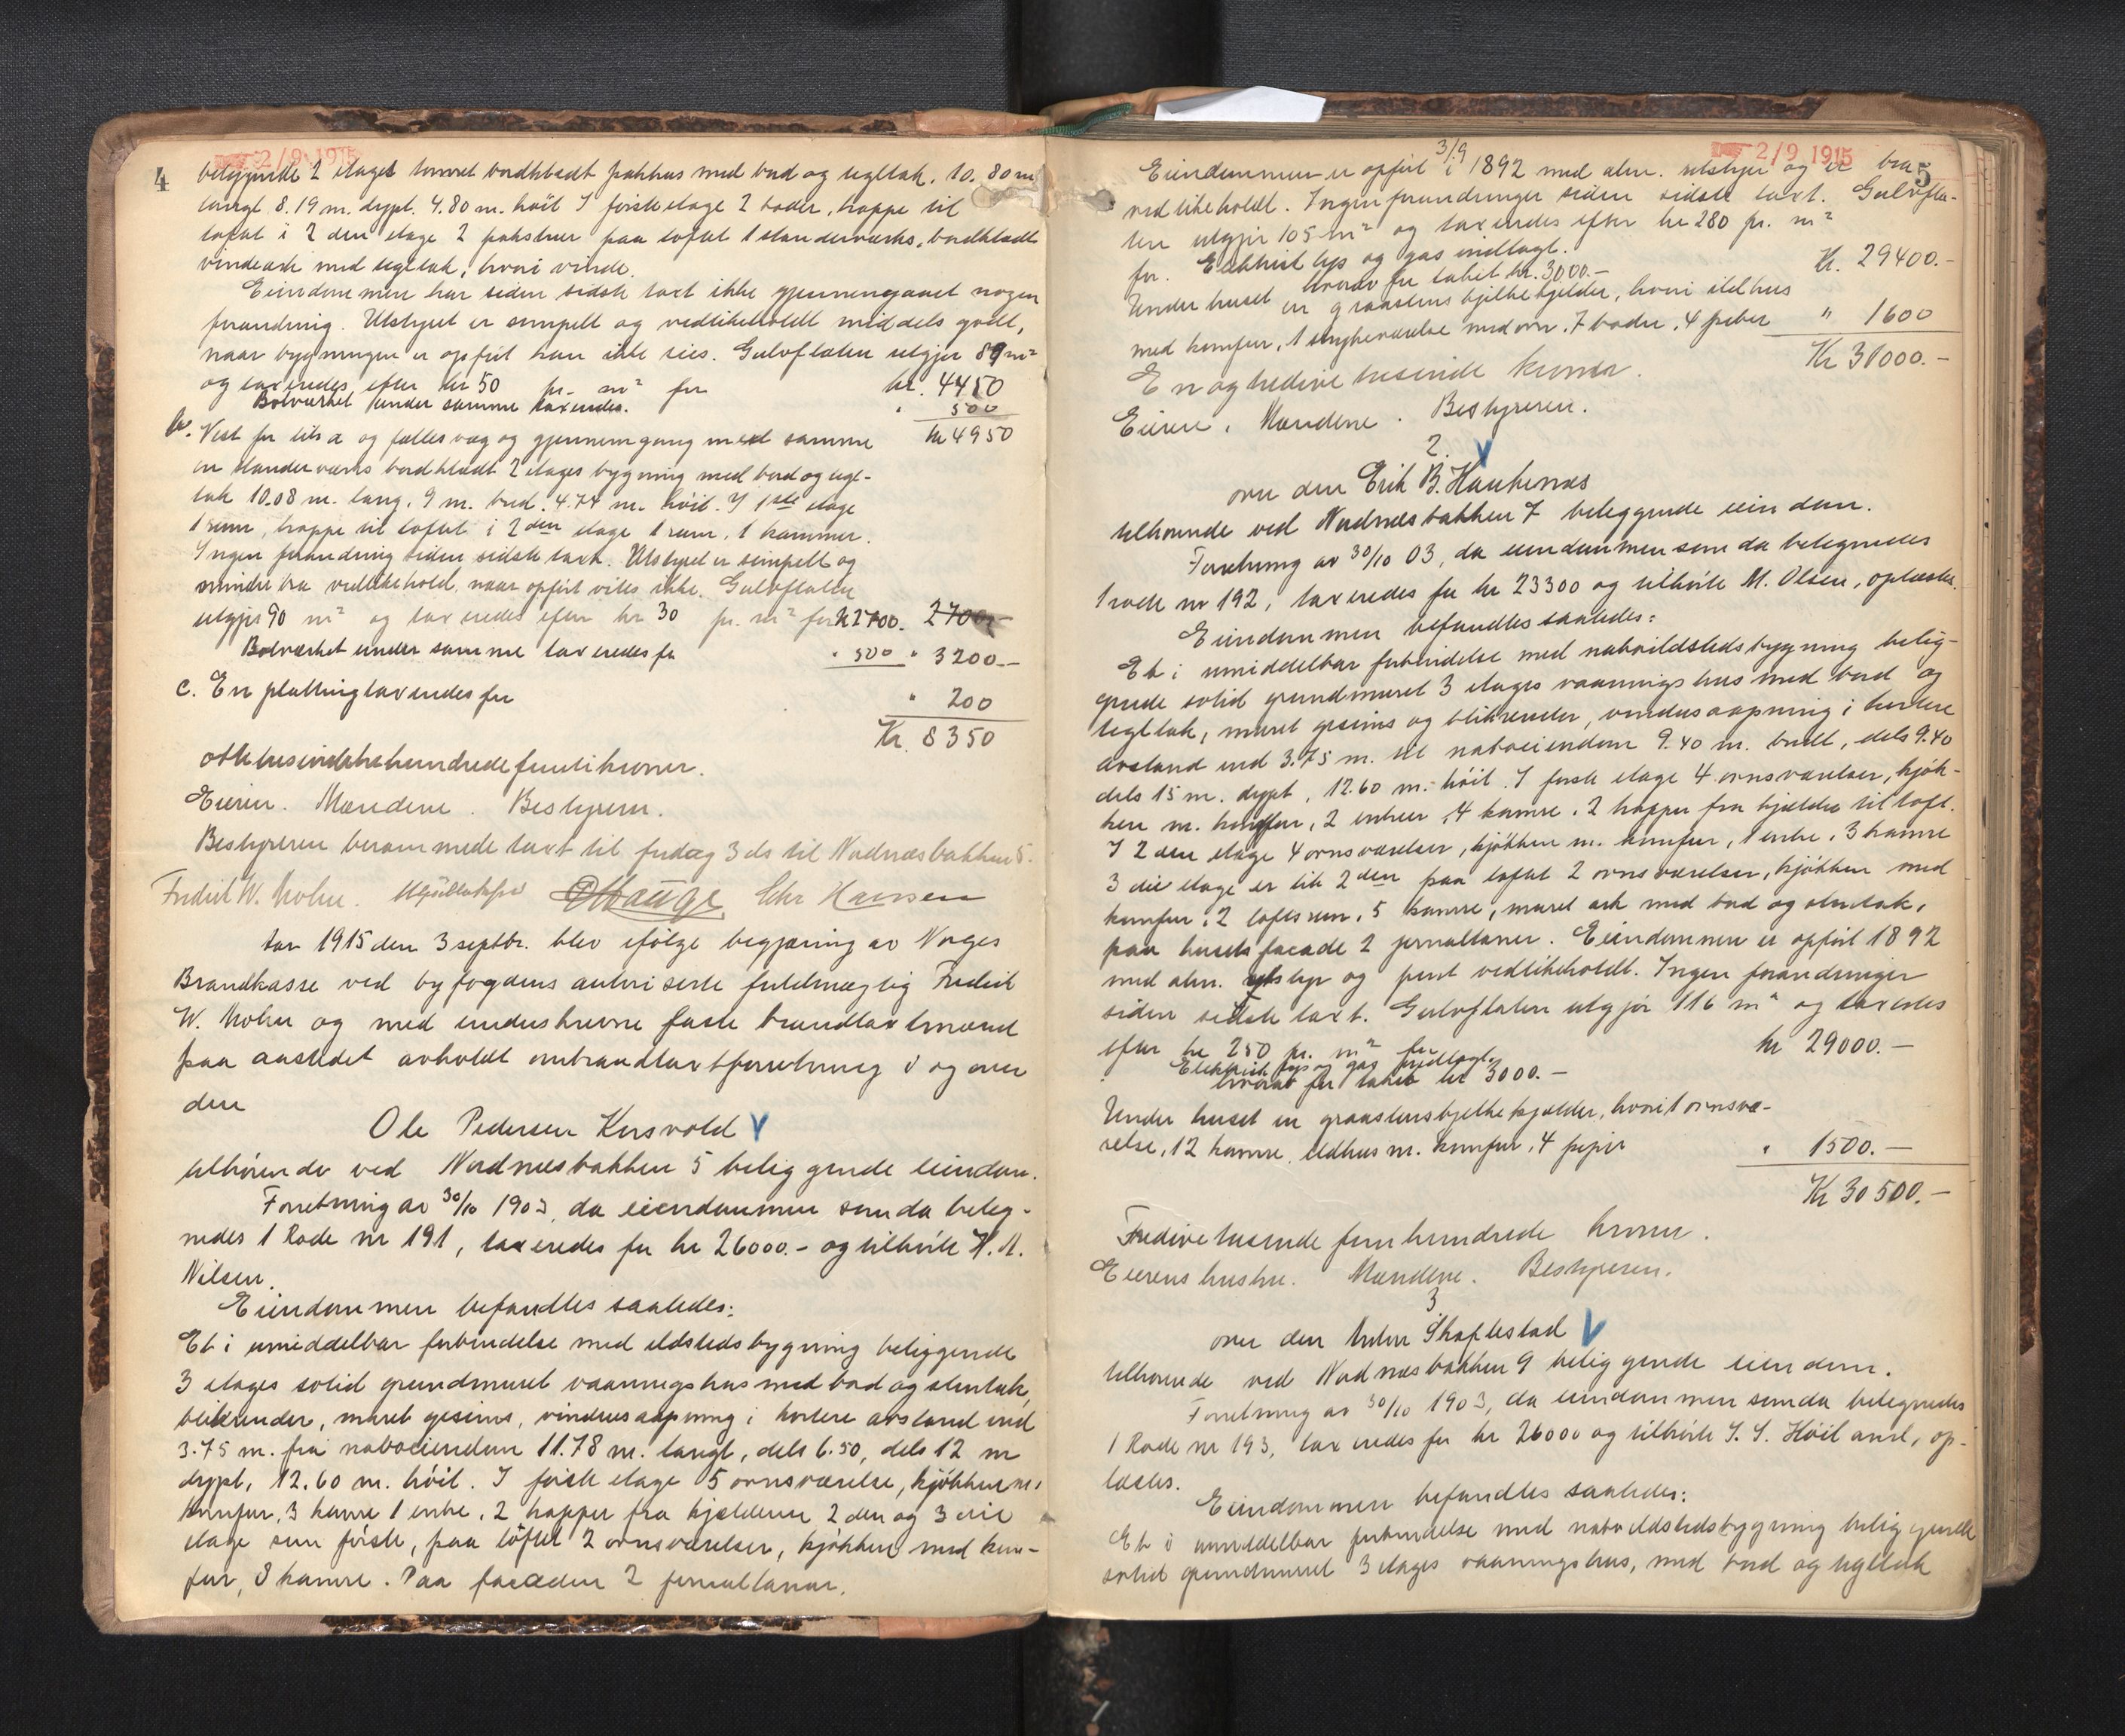 4
2/9 1915
beliggende 2 etages tømret bordklædt pakhus med bord og tegltak. 10.80 m
langt 8.19 m. dypt. 4.80 m. høit I første etage 2 boder, trappe til
loftet i 2 den etage 2 pakstuer paa loftet 1 standerverks, bordklædt
vindeark med tegltak, hvori vinde.
Eiendommen har siden sidste taxt ikke gjennemgaaet nogen
forandring. Utstyret er simpelt og vedlikeholdt middels godt,
naar bygningen er opført kan ikke sies. Gulvflaten utgjør 89 m²
og taxeredes efter kr 50 pr. m² for kr. 4450
Bolverket under samme taxeredes. " 500
kr 4950
b. Vest for litra a og fælles væg og gjennemgang med samme
en standerverks bordklædt 2 etages bygning med bord og tegl-
tak 10.08 m. lang, 9 m. bred. 4.74 m. høit. I 1ste etage
1 rum, trappe til loftet i 2den etage 1 rum, 1 kammer.
Ingen forandring siden sidste taxt. Utstyret er simpelt og
mindre bra vedlikehold. naar opført vites ikke. Gulvflaten
utgjør 90 m² og taxeredes efter kr 30 pr. m² for kr 2700. 2700.-
Bolverket under samme taxeredes for " 500 " 3200.-
c. En platting taxeredes for " 200
Kr. 8350
ottetusindetrehundredefemti kroner.
Eieren. Mændene. Bestyreren.
Bestyreren berammede taxt til fredag 3 ds til Nordnæsbakken 5.
Fredrik W. Mohn. Chr Hansen
Aar 1915 den 3 septbr. blev ifølge begjæring av Norges
Brandkasse ved byfogdens autoriserte fuldmægtig Fredrik
W. Mohn og med underskrevne faste brandtaxtmænd
paa aastedet avholdt ombrandtaxtforretning i og over
den
Ole Pedersen Kursvold V
tilhørende ved Nordnæsbakken 5 beliggende eiendom.
Forretning av 30/10 1903, da eiendommen som da beteg-
nedes 1 Rode nr 191, taxeredes for kr 26000.- og tilhørte H. A.
Nilsen.
Eiendommen befandtes saaledes:
Et i umiddelbar forbindelse med ildstedsbygning beliggende
3 etages solid grundmuret vaaningshus med bord og stentak,
blikrender, muret gesims, vinduesaapning i kortere avstand end
3.75 m. fra naboeiendom 11.78 m. langt, dels 6.50, dels 12 m
dypt, 12.60 m. høit. I første etage 5 ovnsværelse, kjøkken m.
komfur, 3 kamre 1 entre. 2 trapper fra kjelderen 2 den og 3 die
etage som første, paa loftet 2 ovnsværelser, kjøkken med kom-
fur, 3 kamre. Paa facaden 2 jernaltaner.
5
3/9
2/9 1915
Eiendommen er opført i 1892 med alm. utstyr og er bra
vedlikeholdt. Ingen forandringer siden sidste taxt. Gulvfla-
ten utgjør 105 m² og taxeredes efter kr 280 pr. m²
for. Elektrisk lys og gas indlagt. Kr. 29400.-
hvorav for taket kr. 3000.-
Under huset en graastens bjelkekjelder, hvori ildhus
med komfur, 1 strykeværelse med ovn, 7 boder, 4 piber " 1600
Kr 31000.-
En og tredive tusinde kroner.
Eieren. Mændene. Bestyreren.
2. V
over den Erik B. Haukenæs
tilhørende ved Nordnæsbakken 7 beliggende eiendom.
Forretning av 30/10 03, da eiendommen som da betegnedes
1 rode nr 192, taxeredes for kr 23300 og tilhørte M. Olsen, oplæstes.
Eiendommen befandtes saaledes:
Et i umiddelbar forbindelse med naboildstedsbygning belig-
gende solid grundmuret 3 etages vaaningshus med bord og
tegltak, muret gesims og blikrender, vinduesaapning i kortere
avstand end 3.75 m. til naboeiendom 9.40 m. bredt, dels 9.40
dels 15 m. dypt, 12.60 m. høit. I første etage 4 ovnsværelser, kjøk-
ken m. komfur, 2 entreer, 4 kamre, 2 trapper fra kjelder til loft.
I 2 den etage 4 ovnsværelser, kjøkken m. komfur, 1 entre, 3 kamre
3 die etage er lik 2den paa loftet 2 ovnsværelser, kjøkken med
komfur, 2 loftsrum, 5 kamre, muret ark med bord og stentak,
paa husets facade 2 jernaltaner. Eiendommen er opført 1892
med alm. utstyr og pent vedlikeholdt. Ingen forandringer
siden sidste taxt. Gulvflaten utgjør 116 m² og taxeredes
efter kr 250 pr. m² for kr 29000.-
Elektrisk lys og gas indlagt.
hvorav for taket kr 3000.-
Under huset en graastensbjelkekjelder, hvori 1 ovnsvæ-
relse, 12 kamre, ildhus m. komfur, 4 piper " 1500.-
Kr 30500.-
Tredivetusinde femhundrede kroner.
Eierens hustru. Mændene. Bestyreren.
3
over den Anton Skaftestad V
tilhørende ved Nordnæsbakken 9 beliggende eiendom.
Forretning av 30/10 1903, da eiendommen som da betegnedes
1 Rode nr 193, taxeredes for kr 26000 og tilhørte J. S. Høiland, op-
læstes.
Eiendommen befandtes saaledes:
Et i umiddelbar forbindelse med naboildstedsbygning beliggende
solid grundmuret 3 etages vaaningshus, med bord og tegltak